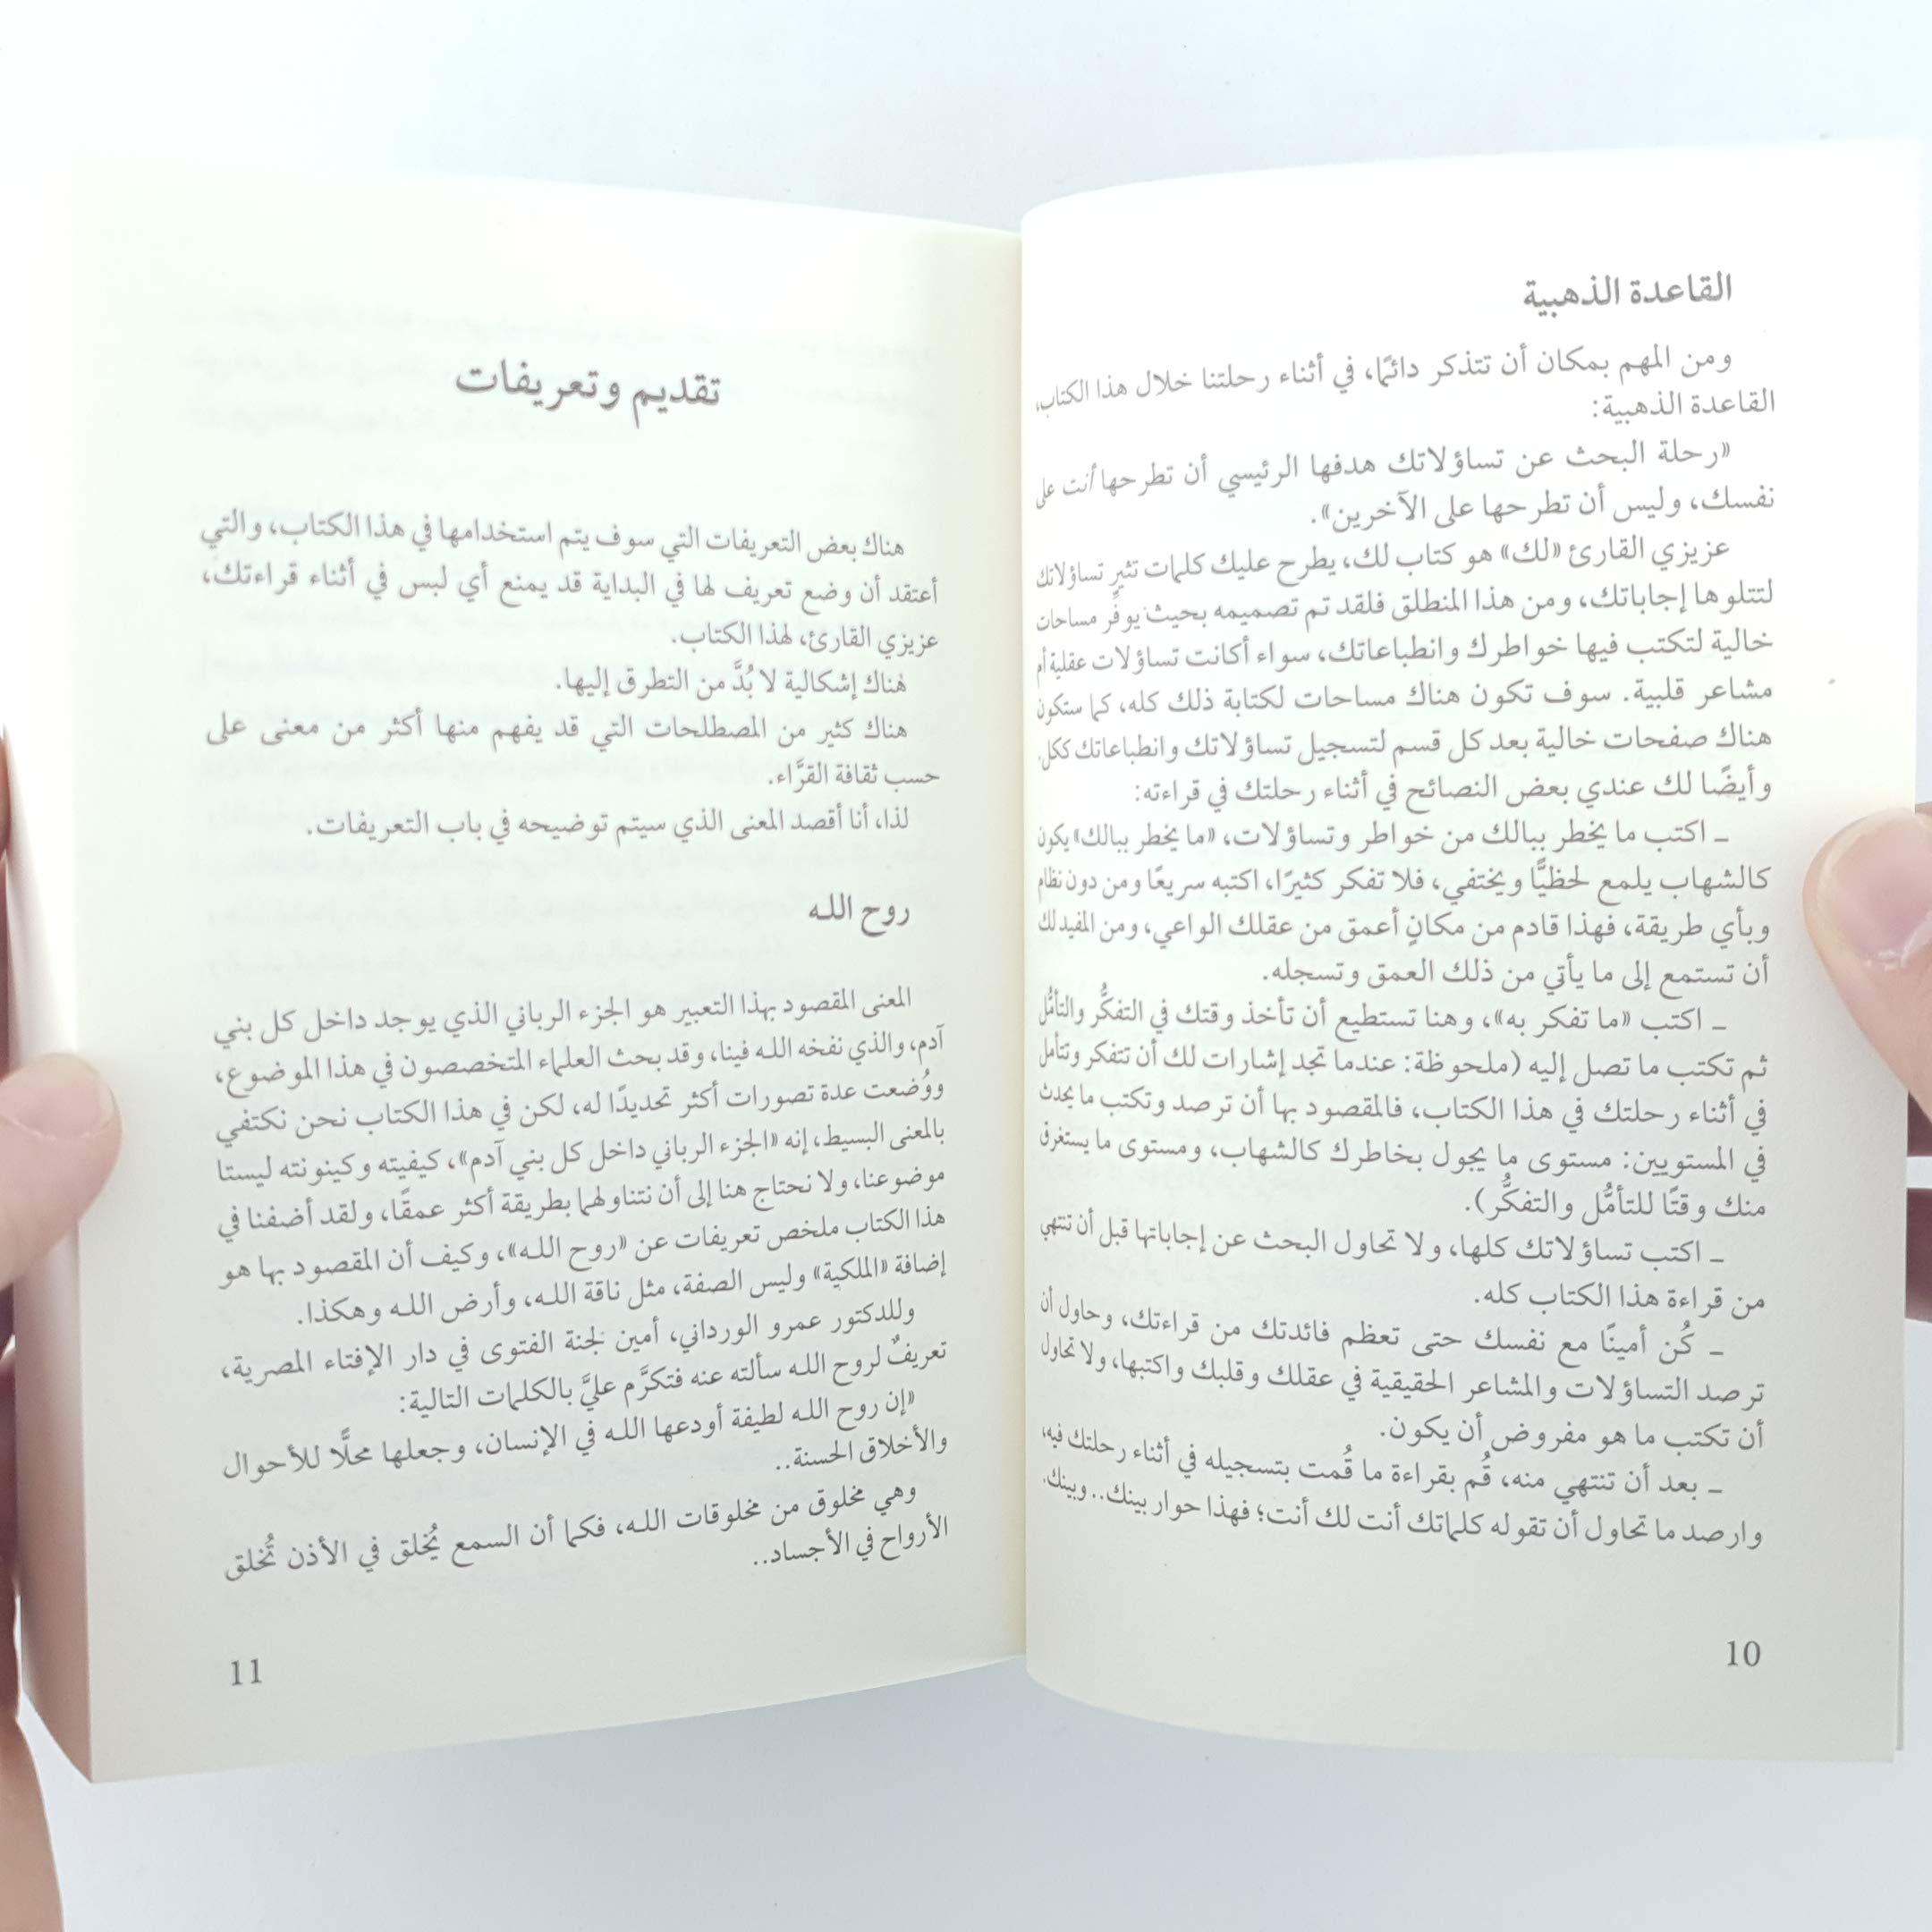 القاعدة الذهبية
ومن المهم بمكان أن تتذكر دائمًا، في أثناء رحلتنا خلال هذا الكتاب،
القاعدة الذهبية:
«رحلة البحث عن تساؤلاتك هدفها الرئيسي أن تطرحها أنت على
نفسك، وليس أن تطرحها على الآخرين».
عزيزي القارئ «لك» هو كتاب لك، يطرح عليك كلمات تثير تساؤلاتك
لتتلوها إجاباتك، ومن هذا المنطلق فلقد تم تصميمه بحيث يوفِّر مساحات
خالية لتكتب فيها خواطرك وانطباعاتك، سواء أكانت تساؤلات عقلية أم
مشاعر قلبية. سوف تكون هناك مساحات لكتابة ذلك كله، كما ستكون
هناك صفحات خالية بعد كل قسم لتسجيل تساؤلاتك وانطباعاتك ككل.
وأيضًا لك عندي بعض النصائح في أثناء رحلتك في قراءته:
ـ اكتب ما يخطر ببالك من خواطر وتساؤلات، «ما يخطر ببالك» يكون
كالشهاب يلمع لحظيًّا ويختفي، فلا تفكر كثيرًا، اكتبه سريعًا ومن دون نظام
وبأي طريقة، فهذا قادم من مكانٍ أعمق من عقلك الواعي، ومن المفيد لك
أن تستمع إلى ما يأتي من ذلك العمق وتسجله.
ـ اكتب «ما تفكر به»، وهنا تستطيع أن تأخذ وقتك في التفكُّر والتأمُّل
ثم تكتب ما تصل إليه (ملحوظة: عندما تجد إشارات لك أن تتفكر وتتأمل
في أثناء رحلتك في هذا الكتاب، فالمقصود بها أن ترصد وتكتب ما يحدث
في المستويين: مستوى ما يجول بخاطرك كالشهاب، ومستوى ما يستغرق
منك وقتًا للتأمُّل والتفكُّر).
ـ اكتب تساؤلاتك كلها، ولا تحاول البحث عن إجاباتها قبل أن تنتهي
من قراءة هذا الكتاب كله.
ـ كُن أمينًا مع نفسك حتى تعظم فائدتك من قراءتك، وحاول أن
ترصد التساؤلات والمشاعر الحقيقية في عقلك وقلبك واكتبها، ولا تحاول
أن تكتب ما هو مفروض أن يكون.
ـ بعد أن تنتهي منه، قُم بقراءة ما قُمت بتسجيله في أثناء رحلتك فيه،
وارصد ما تحاول أن تقوله كلماتك أنت لك أنت؛ فهذا حوار بينك.. وبينك.
10
تقديم وتعريفات
هناك بعض التعريفات التي سوف يتم استخدامها في هذا الكتاب، والتي
أعتقد أن وضع تعريف لها في البداية قد يمنع أي لبس في أثناء قراءتك،
عزيزي القارئ، لهذا الكتاب.
هناك إشكالية لا بُدَّ من التطرق إليها.
هناك كثير من المصطلحات التي قد يفهم منها أكثر من معنى على
حسب ثقافة القرَّاء.
لذا، أنا أقصد المعنى الذي سيتم توضيحه في باب التعريفات.
روح الله
المعنى المقصود بهذا التعبير هو الجزء الرباني الذي يوجد داخل كل بني
آدم، والذي نفخه الله فينا، وقد بحث العلماء المتخصصون في هذا الموضوع،
ووُضعت عدة تصورات أكثر تحديدًا له، لكن في هذا الكتاب نحن نكتفي
بالمعنى البسيط، إنه «الجزء الرباني داخل كل بني آدم»، كيفيته وكينونته ليستا
موضوعنا، ولا نحتاج هنا إلى أن نتناولهما بطريقة أكثر عمقًا، ولقد أضفنا في
هذا الكتاب ملخص تعريفات عن «روح الله»، وكيف أن المقصود بها هو
إضافة «الملكية» وليس الصفة، مثل ناقة الله، وأرض الله وهكذا.
وللدكتور عمرو الورداني، أمين لجنة الفتوى في دار الإفتاء المصرية،
تعريفٌ لروح الله سألته عنه فتكرَّم عليَّ بالكلمات التالية:
«إن روح الله لطيفة أودعها الله في الإنسان، وجعلها محلًّا للأحوال
والأخلاق الحسنة..
وهي مخلوق من مخلوقات الله، فكما أن السمع يُخلق في الأذن تُخلق
الأرواح في الأجساد..
11